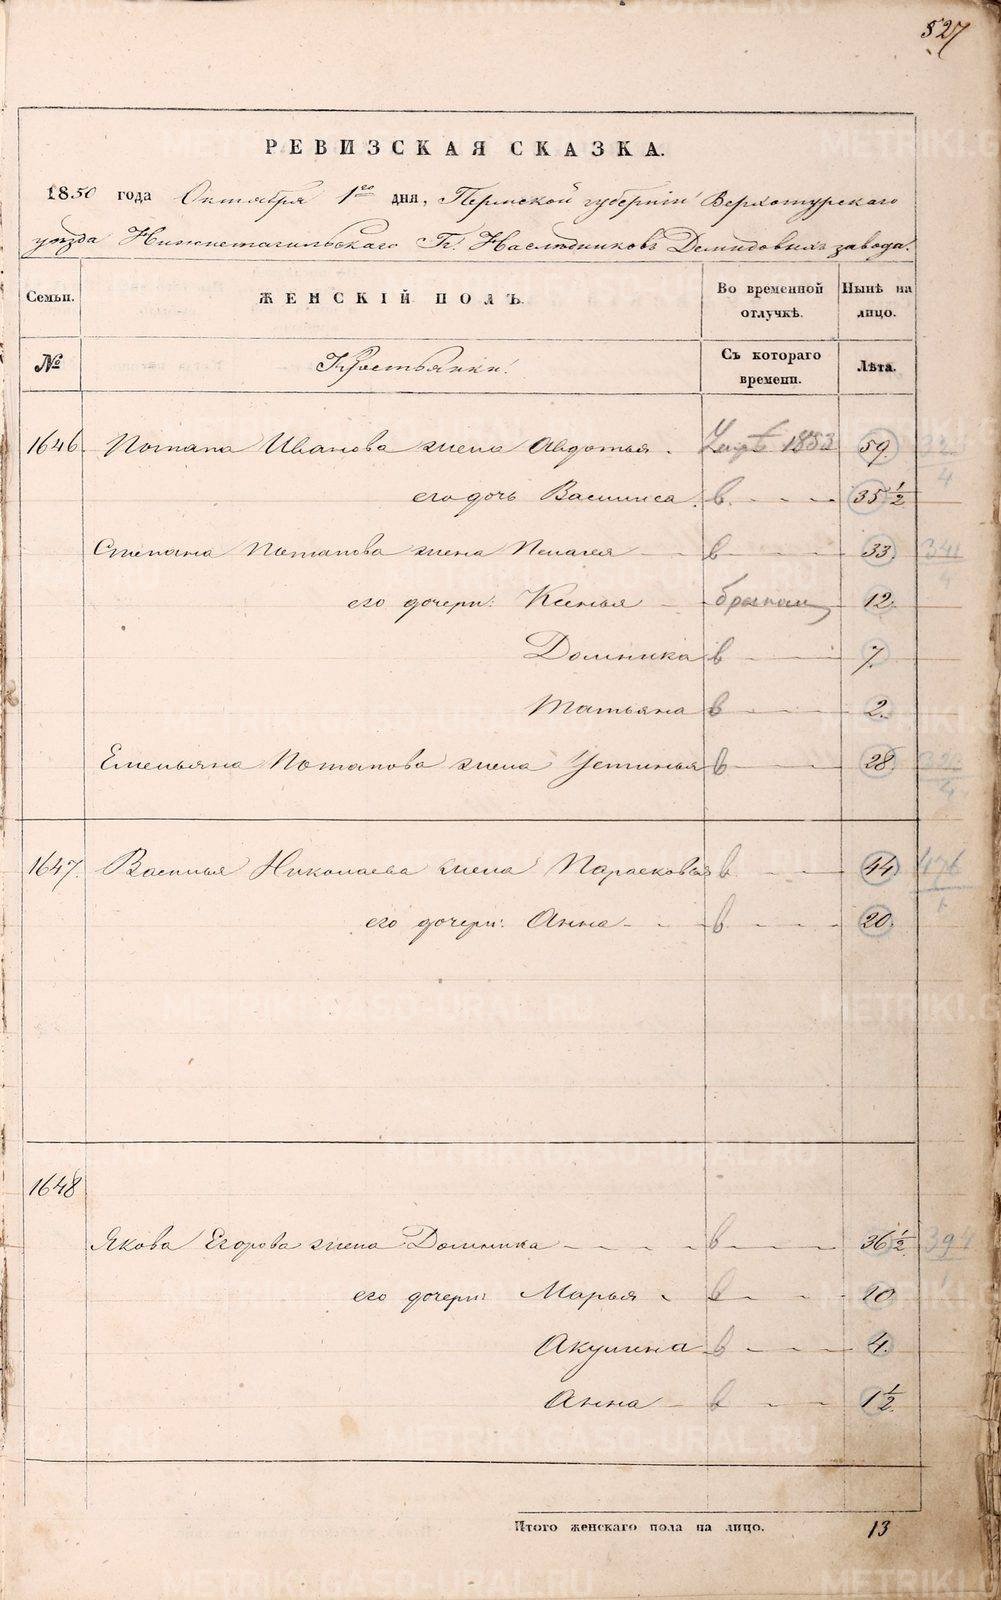 527
РЕВИЗСКАЯ СКАЗКА.
1850 года Октября 1го дня, Пермской губерніи Верхотурскаго
уѣзда Нижнетагильскаго Гг. Наслѣдниковъ Демидовыхъ завода.
Семьи. ЖЕНСКІЙ ПОЛЪ. Во временной отлучкѣ. Нынѣ на лицо.
№ Крестьянки: Съ котораго времени. Лѣта.
1646. Потапа Иванова жена Авдотья. 1853 59. 
его дочь Василиса. в 35 1/2
Степана Потапова жена Пелагея в 33. 341/4
его дочери: Ксенья 12.
Домника в 7.
Татьяна в 2.
Емельяна Потапова жена Устинья в 28.
1647. Василья Николаева жена Парасковья в 44 476/1
его дочери: Анна в 20.
1648
Якова Егорова жена Домника в 36 1/2 394
его дочери: Марья в 10
Акулина в 4.
Анна в 1 1/2
Итого женскаго пола на лицо. 13
METRIKI.GASO-URAL.RU